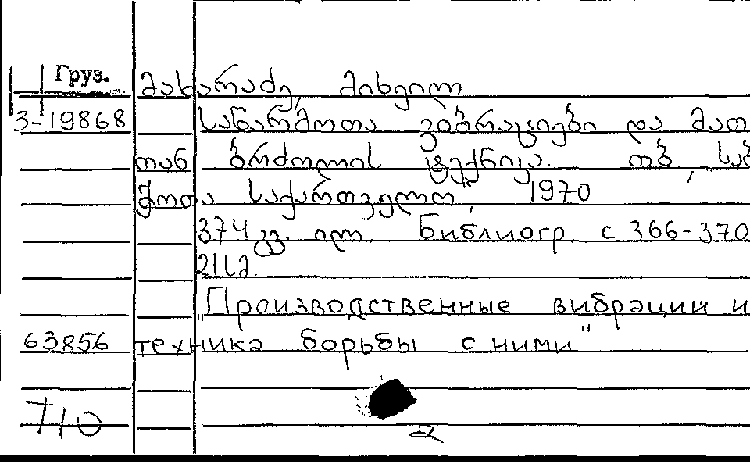 Груз.
მახარაძე, მიხეილ
3-19868
საწარმოთა ვიბრაციები და მათ
თან ბრძოლის ტექნიკა. თბ., საბ
ჭოთა საქართველო, 1970
374 გვ. ილ. Библиогр. с 366-370
21სმ.
"Производственные вибрации и
63856
техника борьбы с ними"
710